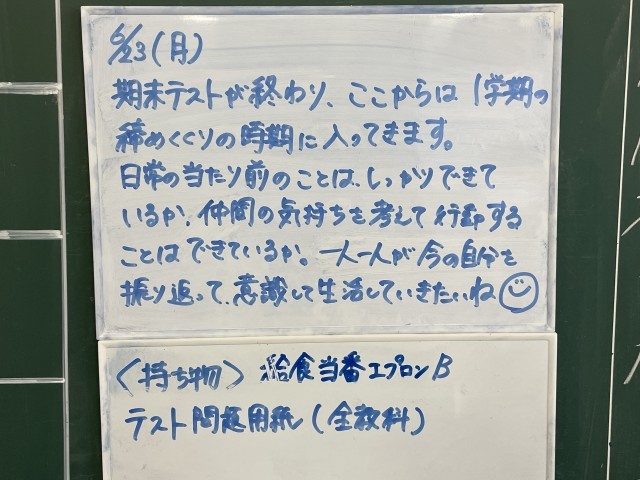 6/23(月)
期末テストが終わり、ここからは1学期の
締めくくりの時期に入ってきます。
日常の当たり前のことは、しっかりできて
いるか、仲間の気持ちを考えて行動する
ことはできているか。一人一人が今の自分を
振り返って、意識して生活していきたいね
〈持ち物〉 給食当番エプロンB
テスト問題用紙(全教科)